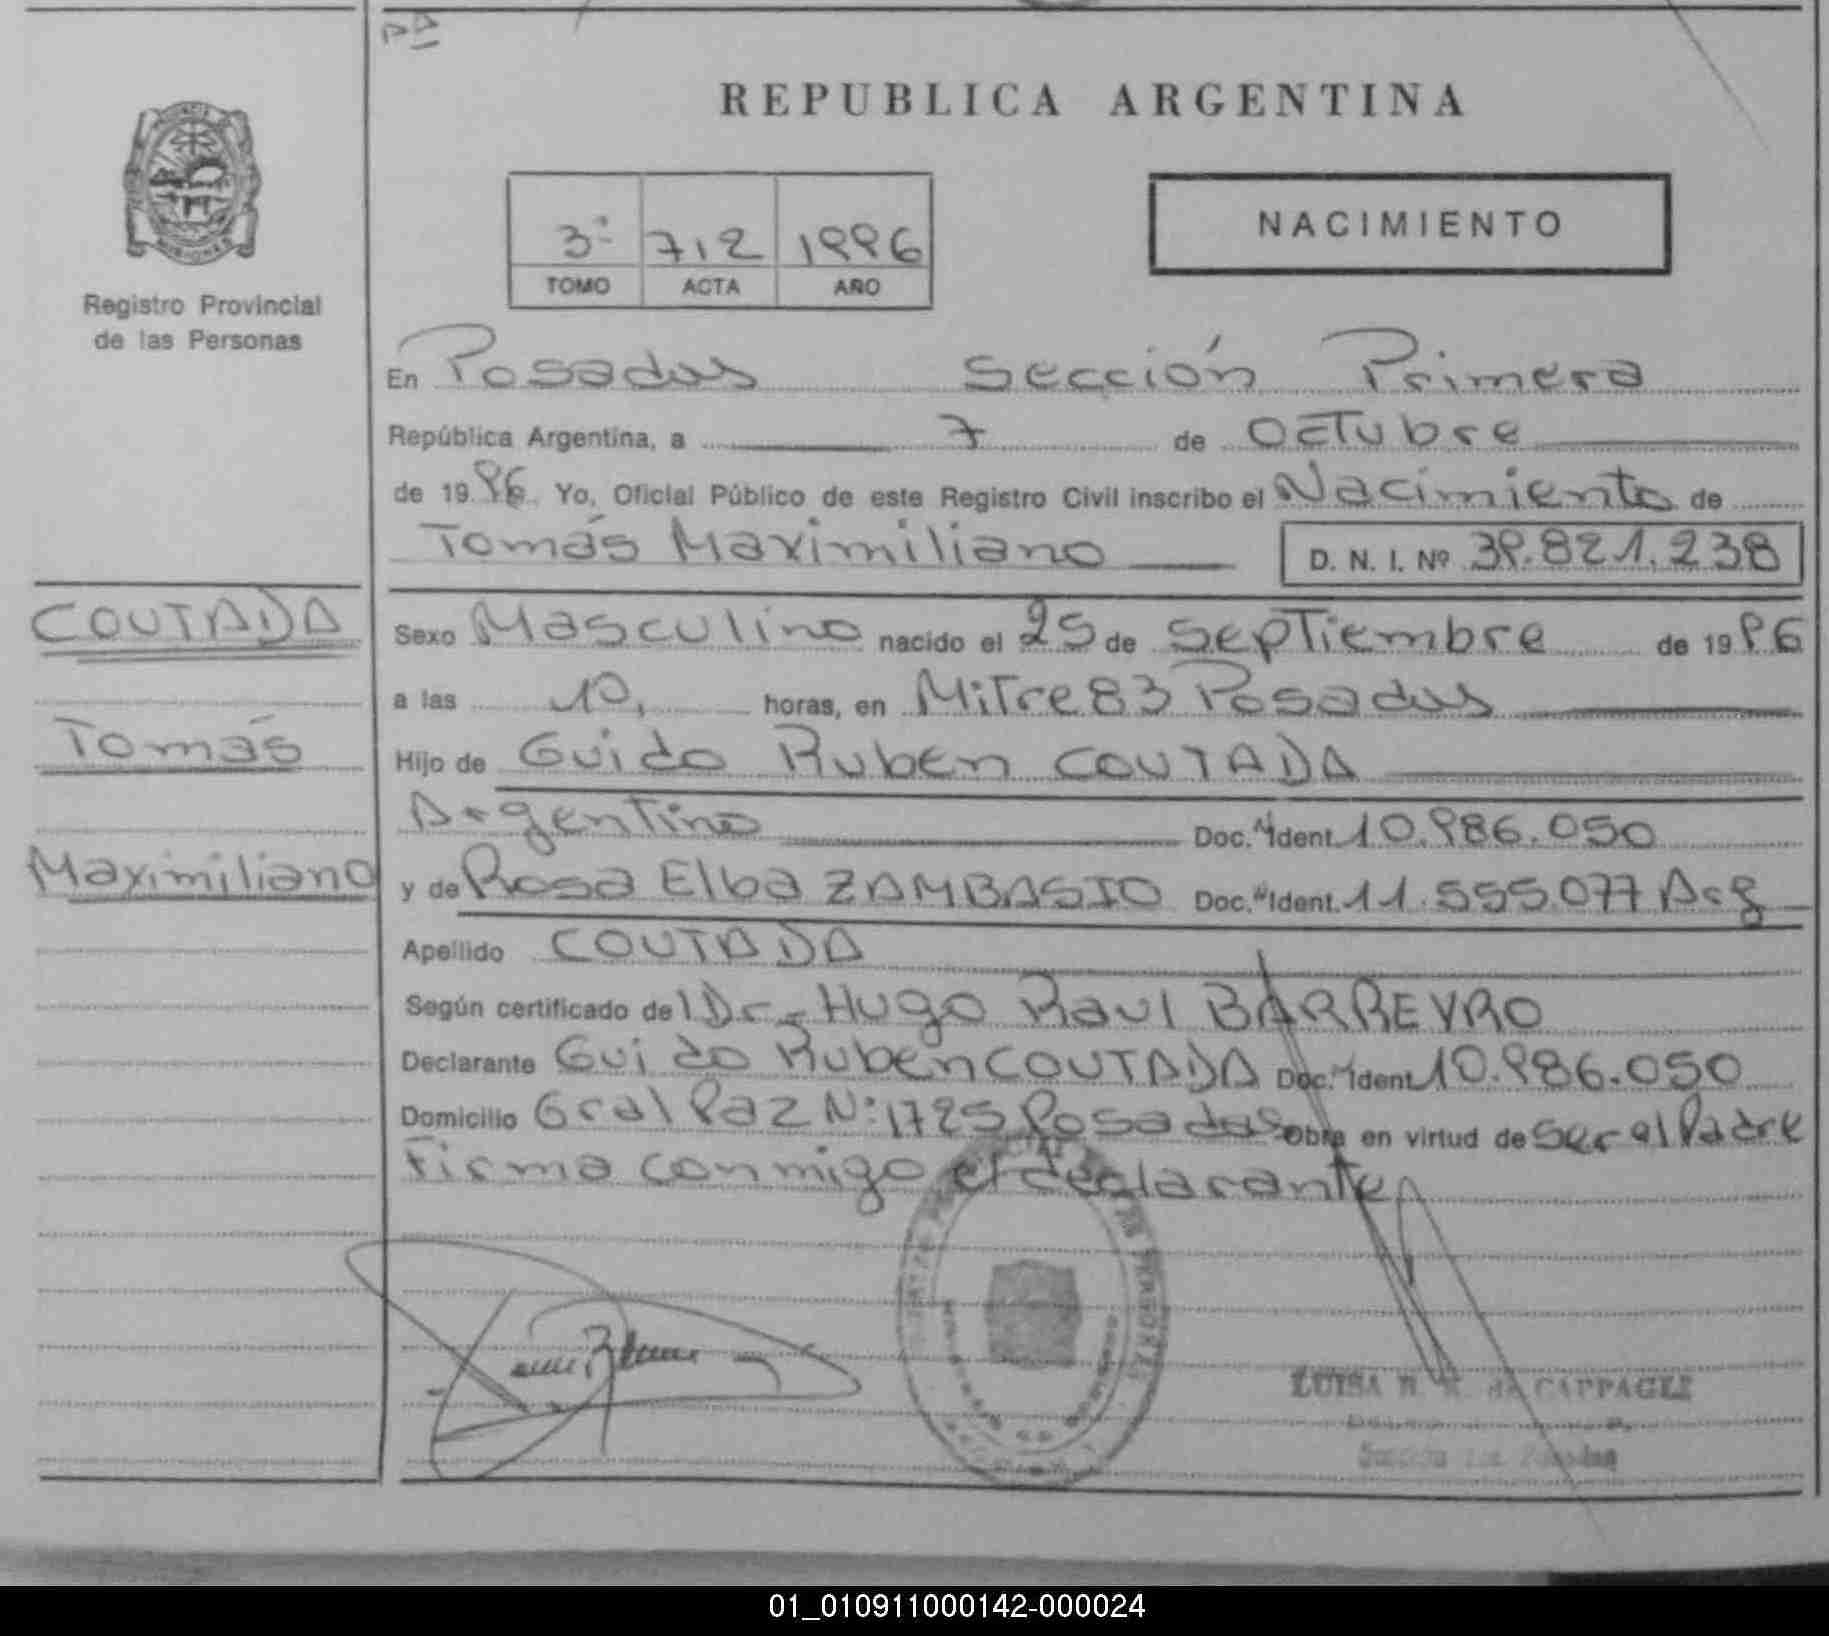 REPUBLICA ARGENTINA
NACIMIENTO
3º 712 1996
TOMO ACTA AÑO
Registro Provincial
de las Personas
En Posadas Sección Primera
República Argentina, a 7 de Octubre
de 1996 Yo, Oficial Público de este Registro Civil inscribo el Nacimiento de
Tomás Maximiliano D. N. I. Nº 39.821.238
COUTADA
Tomás
Maximiliano
Sexo Masculino nacido el 25 de Septiembre de 1996
a las 10, horas, en Mitre 83 Posadas
Hijo de Guido Ruben COUTADA
Argentino Doc. Ident. 10.986.050
y de Rosa Elba ZAMBASIO Doc. Ident. 11.555.077 Arg
Apellido COUTADA
Según certificado del Dr. Hugo Raul BARREYRO
Declarante Guido Ruben COUTADA Doc. Ident. 10.986.050
Domicilio Gral Paz Nº 1725 Posadas Obra en virtud de ser el Padre
Firma conmigo el declarante
LUISA de CAPPAGLI
01_010911000142-000024